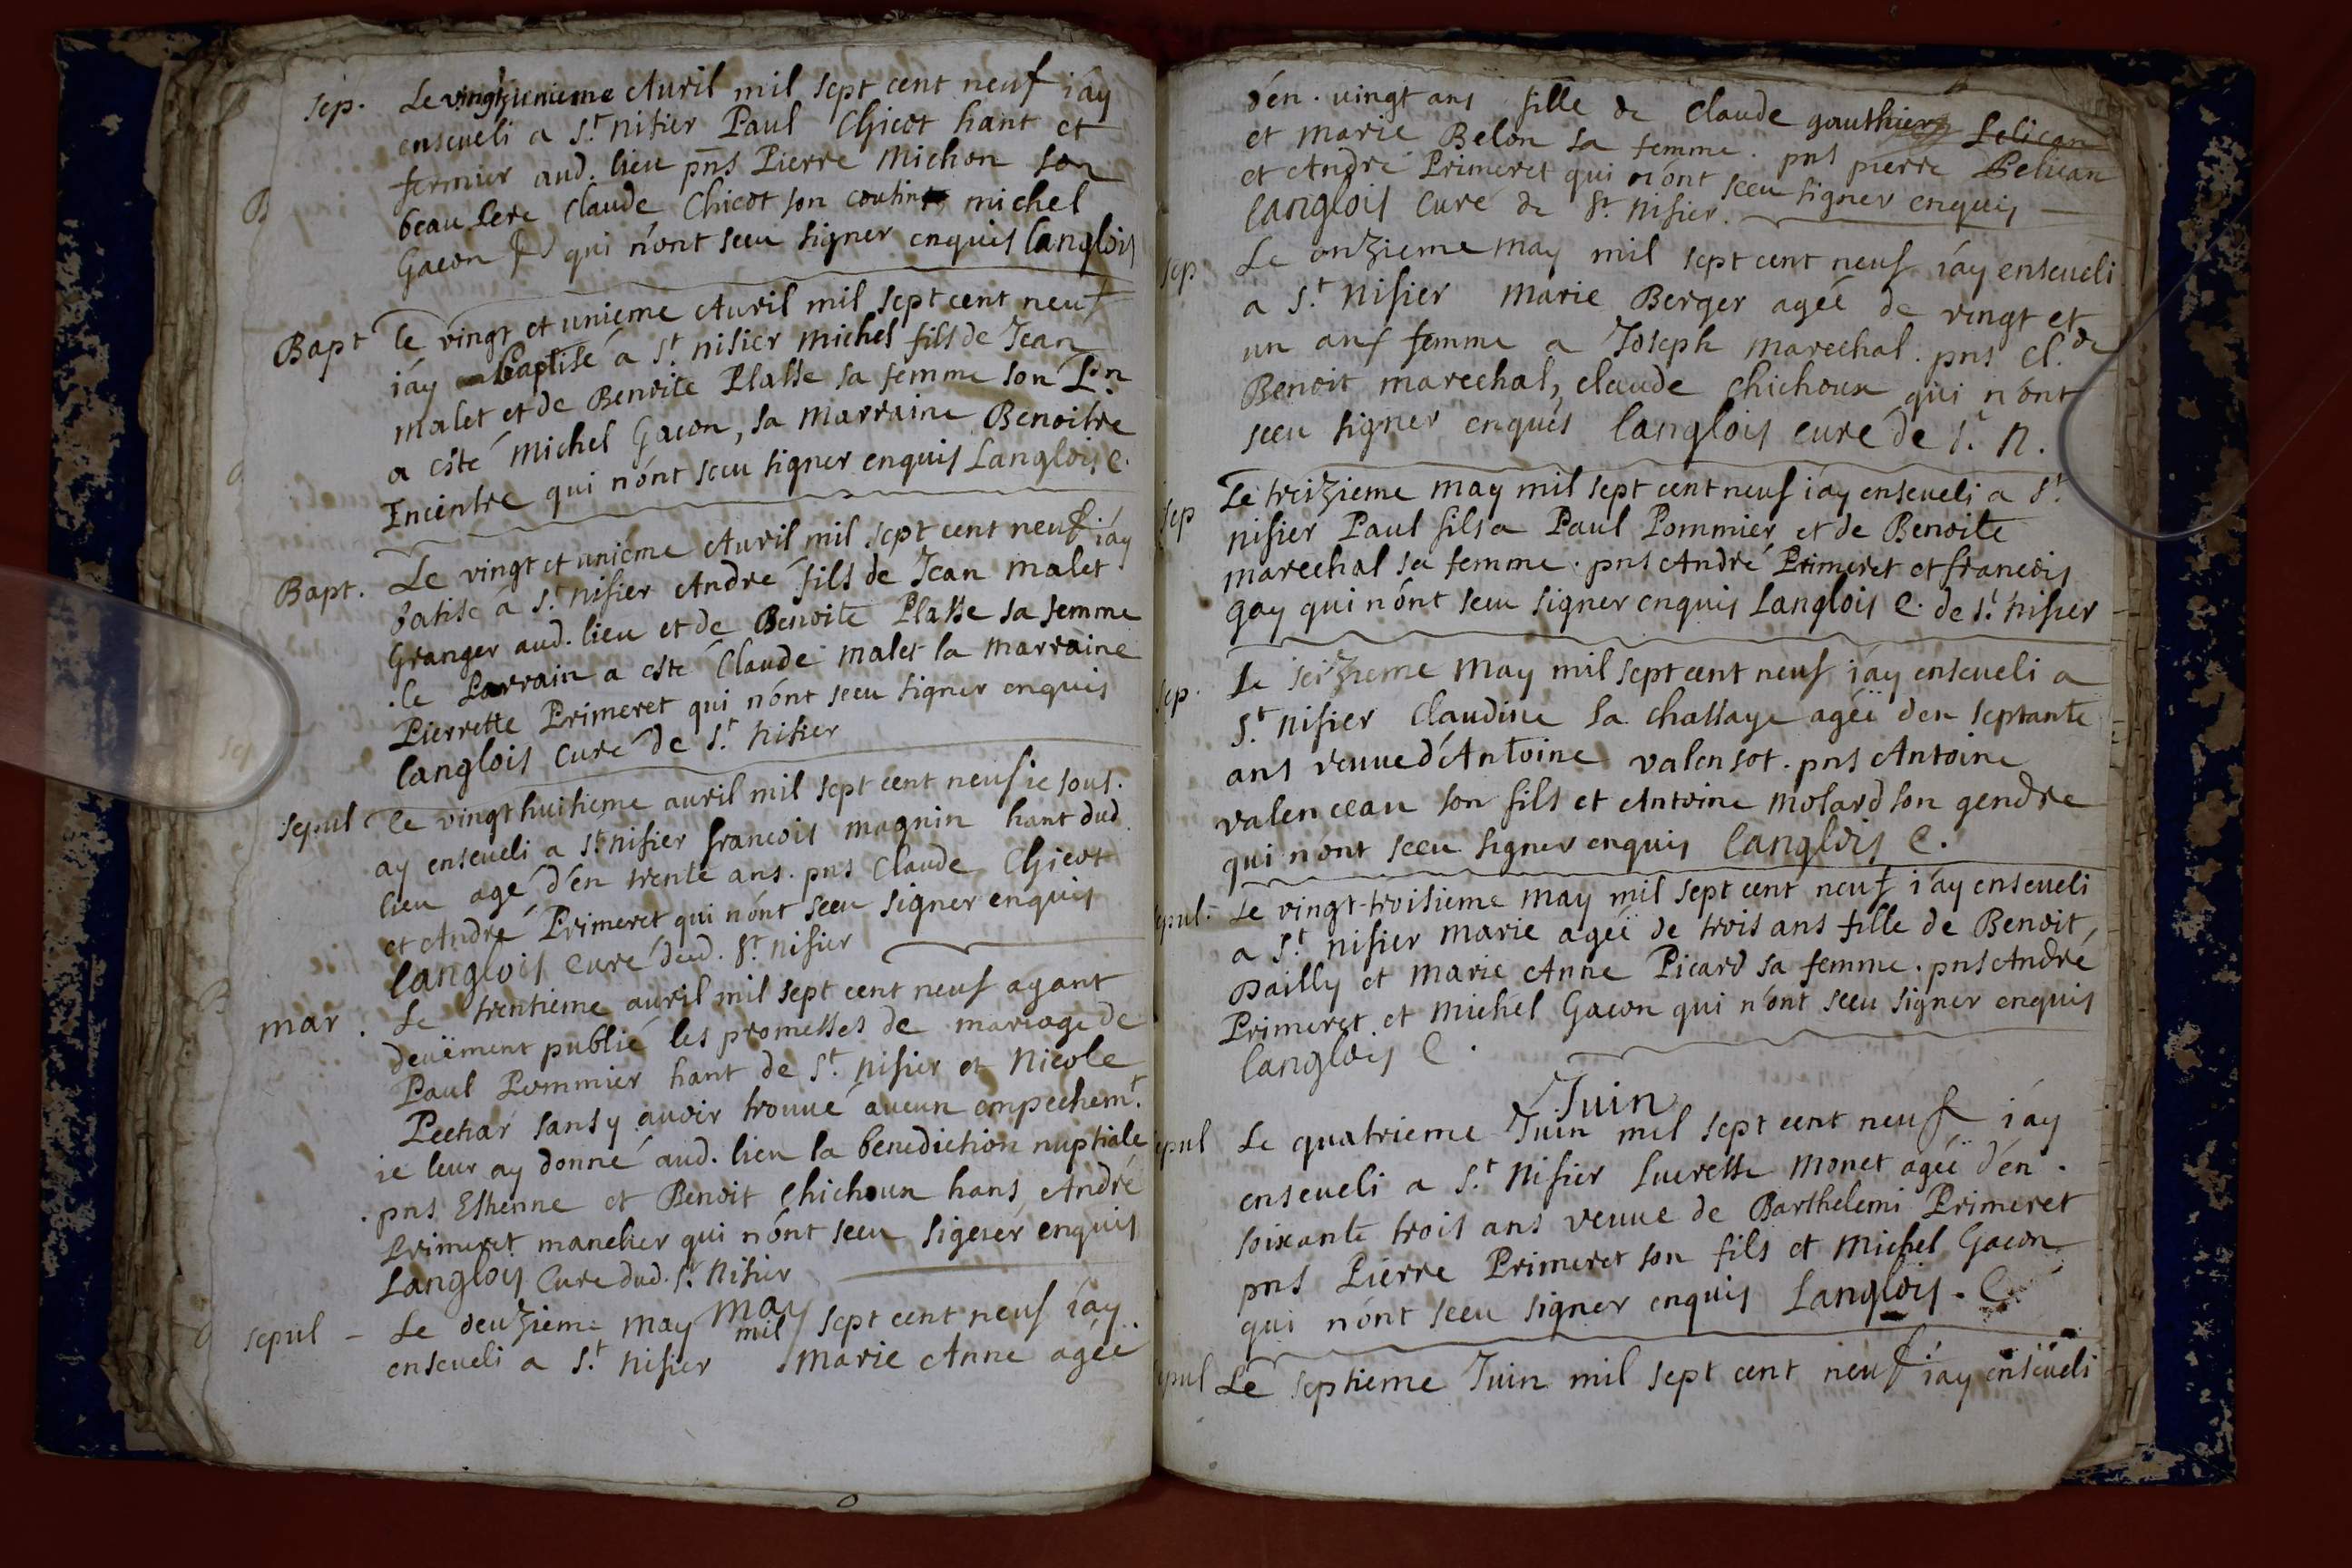 sep. Le vingt unieme Auril mil sept cent neuf i'ay
enseueli a St. nisier Paul Chicot hant et
fermier aud. lieu pns Pierre michon son
beau Pere Claude Chicot son cousin michel
Gacon qui n'ont sceu signer enquis Langlois
Bapt le vingt et unieme Auril mil sept cent neuf
i'ay baptisé a St nisier michel fils de Jean
malet et de Benoite Plasse sa femme son Prn
a esté michel Gacon, sa marraine Benoitre
Encintre qui n'ont sceu signer enquis Langlois C.
Bapt. Le vingt et unieme Auril mil sept cent neuf i'ay
batisé a St. nisier André fils de Jean malet
Granger aud. lieu et de Benoite Plasse sa femme
.le Parrain a esté Claude malet la marraine
Pierrette Primeret qui n'ont sceu signer enquis
Langlois Curé de St. nisier
sepul le vingt huitieme auril mil sept cent neuf ie sous.
ay enseueli a St. nisier francois magnin hant dud.
lieu agé d'en trente ans. pns Claude Chicot
et André Primeret qui n'ont sceu signer enquis
Langlois Curé dud. St. nisier
mar. Le trentieme auril mil sept cent neuf ayant
deuëment publié les promesses de mariage de
Paul Pommier hant de St. nisier et Nicole
Pechar sans y auoir trouué aucun empechemt.
ie leur ay donné aud. lieu la benediction nuptiale
. pns Estienne et Benoit Chichoux hans, André
Primeret manelier qui n'ont sceu signer enquis
Langlois Curé dud. St. Nisier
may
sepul - Le deuzieme may mil sept cent neuf i'ay
enseueli a St. nisier Marie Anne agée
d'en. vingt ans fille de Claude gauthier Pelican
et marie Belon sa femme. pns pierre Pelican
et André Primeret qui n'ont sceu signer enquis
Langlois Curé de St. nisier.
sep. Le onzieme may mil sept cent neuf i'ay enseueli
a St. nisier marie Berger ageé de vingt et
un ans femme a Joseph marechal. pns Cl. de
Benoit marechal, claude chichoux qui n'ont
sceu signer enquis Langlois curé de S. N.
sep Le treizieme may mil sept cent neuf i'ay enseueli a St.
nisier Paul fils a Paul Pommier et de Benoite
marechal sa femme. pns André Primeret et francois
gay qui n'ont sceu signer enquis Langlois C. de St. nisier
sep. Le seizieme may mil sept cent neuf i'ay enseueli a
St. nisier Claudine la chassaye ageë d'en septante
ans veuue d'Antoine valensot. pns Antoine
valenceau son fils et Antoine molard son gendre
qui n'ont sceu signer enquis Langlois C.
epul. Le vingt-troisieme may mil sept cent neuf i'ay enseueli
a St. nisier marie ageë de trois ans fille de Benoit
Dailly et marie Anne Picard sa femme. pns André
Primeret et michel Gacon qui n'ont sceu signer enquis
Langlois C.
Juin
epul Le quatrieme Juin mil sept cent neuf i'ay
enseueli a St. nisier Lucresse monet ageë d'en.
soixante trois ans veuue de Barthelemi Primeret
pns Pierre Primeret son fils et michel Gacon
qui n'ont sceu signer enquis Langlois. C.
epul Le septieme Juin mil sept cent neuf i'ay enseueli